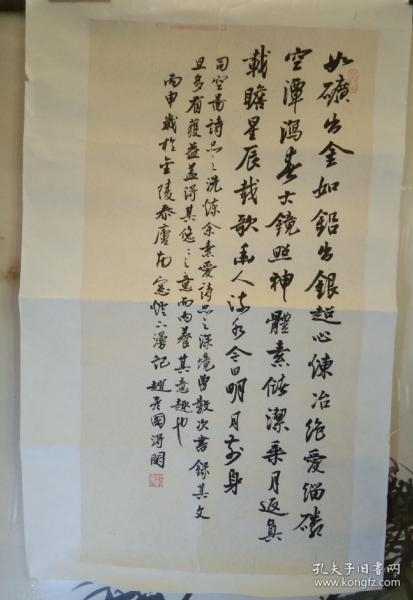 如礦出金如鉛出銀超心煉冶絕愛緇磷
空潭瀉春古鏡照神體素儲潔乘月返真
載瞻星辰載歌幽人流水今日明月前身
司空圖詩品之洗煉余素愛詩品之深境曾數次書錄其文
且多有獲益蓋得其悠悠之意而內養其意趣也
丙申歲於金陵泰廬南窗燈下漫記趙
孔夫子旧书网
www.kongfz.com